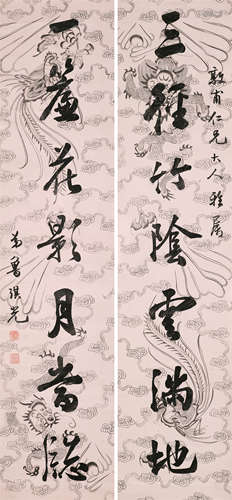 敦甫仁兄大人雅屬
三徑竹陰雲滿地
一簾花影月當牕
弟魯琪光